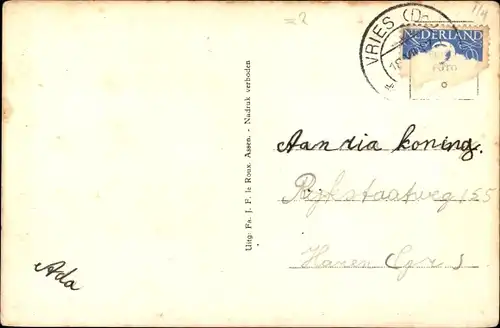 =2
1/4
VRIES (Dr
NEDERLAND
Uitg: Fa. J. F. le Roux. Assen. - Nadruk verboden
Aan ria koning.
Rijkstraatweg 155
Haren (Gr.)
Ada